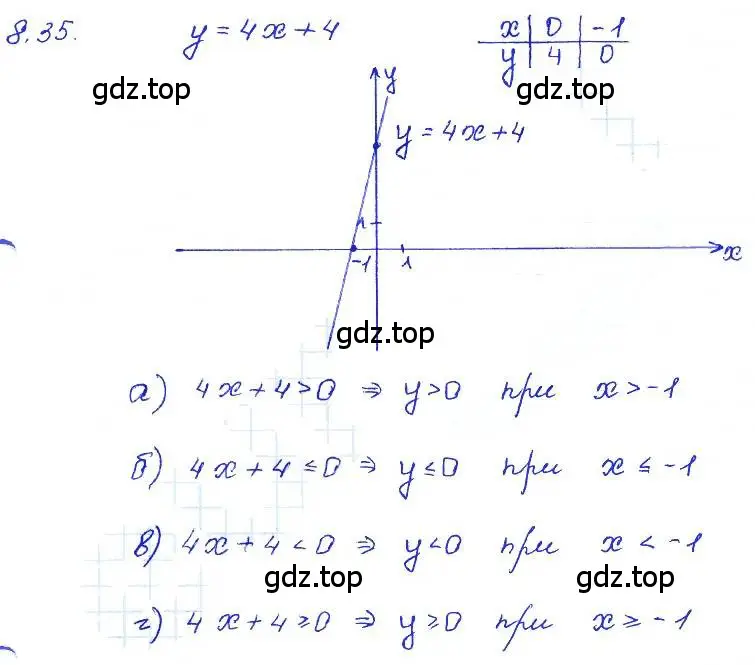 8.35. y = 4x + 4 x | 0 | -1
y | 4 | 0
gdz.top gdz.top
y
y = 4x + 4
1
-1 1 x
gdz.top
а) 4x + 4 > 0 ⇒ y > 0 при x > -1
б) 4x + 4 ≤ 0 ⇒ y ≤ 0 при x ≤ -1
в) 4x + 4 < 0 ⇒ y < 0 при x < -1
gdz.top gdz.top
г) 4x + 4 ≥ 0 ⇒ y ≥ 0 при x ≥ -1